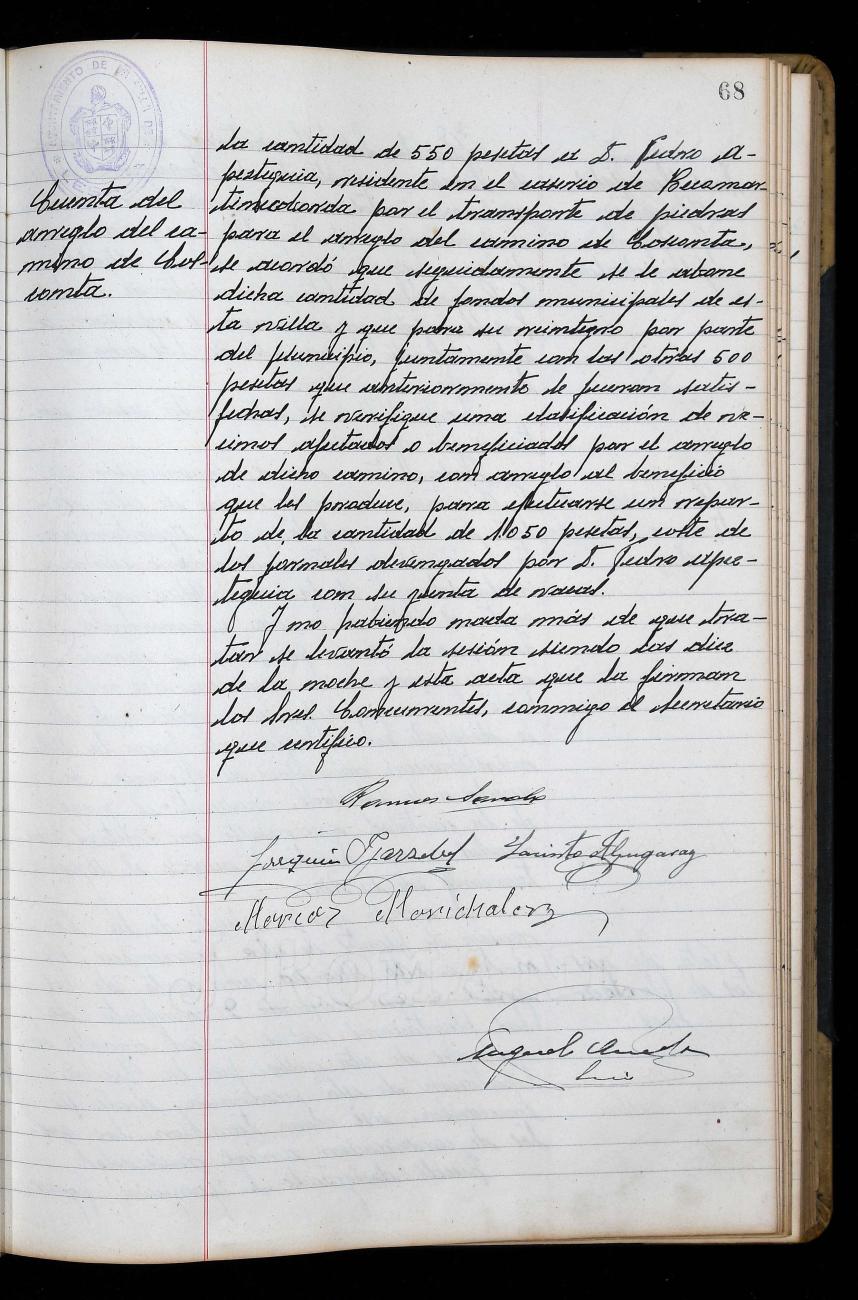 68
AYUNTAMIENTO DE
Cuenta del
arreglo del ca-
mino de Cos-
conta.
la cantidad de 550 pesetas a D. Pedro A-
pesteguia, residente en el caserio de
por el transporte de piedras
para el arreglo del camino de Cosconta,
se acordó que seguidamente se le abone
dicha cantidad de fondos municipales de es-
ta villa y que para su reintegro por parte
del Municipio, juntamente con las otras 500
pesetas que anteriormente se fueran satis-
fechas, se verifique una clasificación de ve-
cinos afectados o beneficiados por el arreglo
de dicho camino, con arreglo al beneficio
que les produce, para efectuarse un repar-
to de la cantidad de 1.050 pesetas, coste de
los jornales devengados por D. Pedro Apes-
teguia con su yunta de vacas.
Y no habiendo nada más de que tra-
tar se levantó la sesión siendo las diez
de la noche y esta acta que la firman
los Sres. Concurrentes, conmigo el Secretario
que certifico.
Joaquin
Marcos Marichalar
Miguel